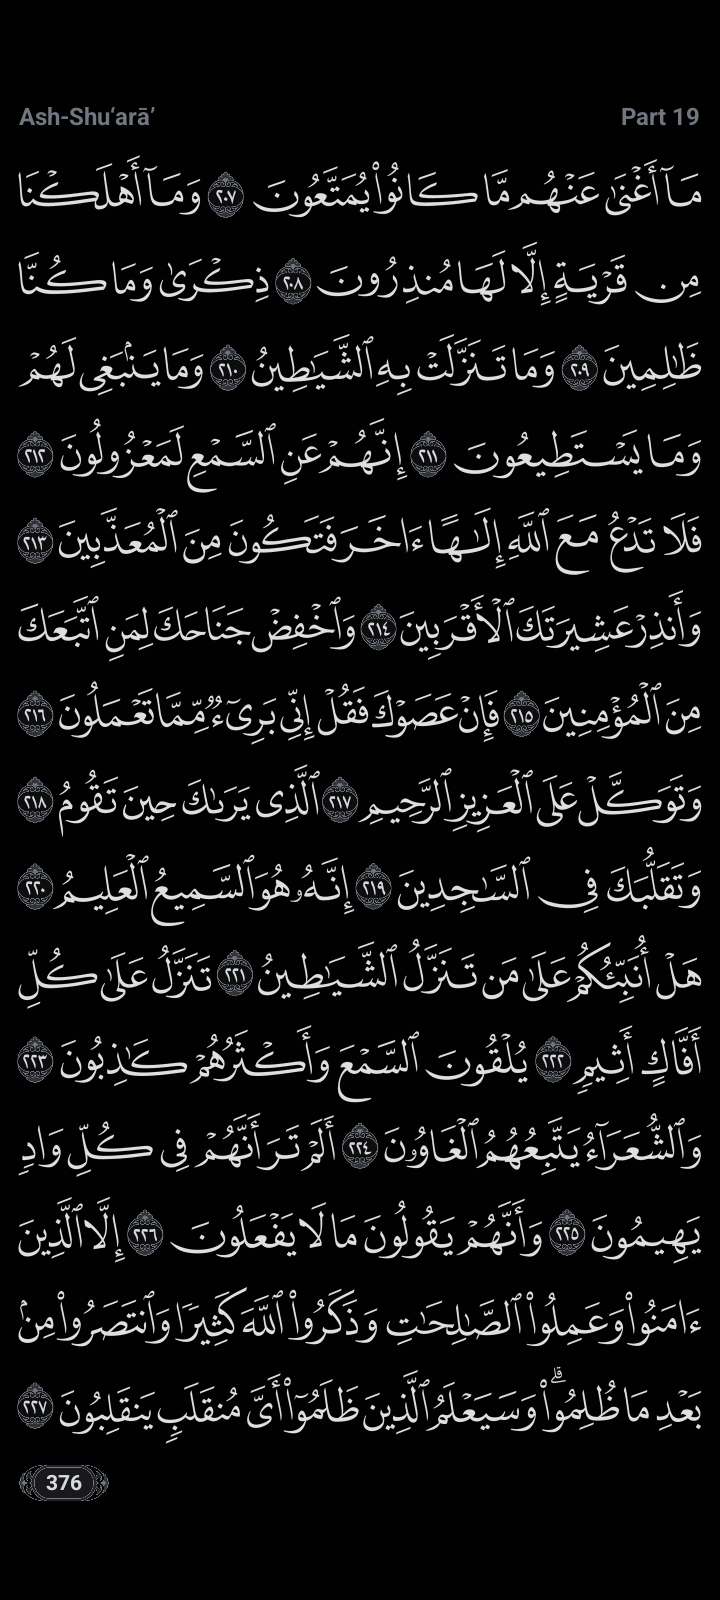 Ash-Shu‘arā’
Part 19
مَآ أَغْنَىٰ عَنْهُم مَّا كَانُوا۟ يُمَتَّعُونَ ٢٠٧ وَمَآ أَهْلَكْنَا
مِن قَرْيَةٍ إِلَّا لَهَا مُنذِرُونَ ٢٠٨ ذِكْرَىٰ وَمَا كُنَّا
ظَـٰلِمِينَ ٢٠٩ وَمَا تَنَزَّلَتْ بِهِ ٱلشَّيَـٰطِينُ ٢١٠ وَمَا يَنۢبَغِى لَهُمْ
وَمَا يَسْتَطِيعُونَ ٢١١ إِنَّهُمْ عَنِ ٱلسَّمْعِ لَمَعْزُولُونَ ٢١٢
فَلَا تَدْعُ مَعَ ٱللَّهِ إِلَـٰهًا ءَاخَرَ فَتَكُونَ مِنَ ٱلْمُعَذَّبِينَ ٢١٣
وَأَنذِرْ عَشِيرَتَكَ ٱلْأَقْرَبِينَ ٢١٤ وَٱخْفِضْ جَنَاحَكَ لِمَنِ ٱتَّبَعَكَ
مِنَ ٱلْمُؤْمِنِينَ ٢١٥ فَإِنْ عَصَوْكَ فَقُلْ إِنِّى بَرِىٓءٌ مِّمَّا تَعْمَلُونَ ٢١٦
وَتَوَكَّلْ عَلَى ٱلْعَزِيزِ ٱلرَّحِيمِ ٢١٧ ٱلَّذِى يَرَىٰكَ حِينَ تَقُومُ ٢١٨
وَتَقَلُّبَكَ فِى ٱلسَّـٰجِدِينَ ٢١٩ إِنَّهُۥ هُوَ ٱلسَّمِيعُ ٱلْعَلِيمُ ٢٢٠
هَلْ أُنَبِّئُكُمْ عَلَىٰ مَن تَنَزَّلُ ٱلشَّيَـٰطِينُ ٢٢١ تَنَزَّلُ عَلَىٰ كُلِّ
أَفَّاكٍ أَثِيمٍ ٢٢٢ يُلْقُونَ ٱلسَّمْعَ وَأَكْثَرُهُمْ كَـٰذِبُونَ ٢٢٣
وَٱلشُّعَرَآءُ يَتَّبِعُهُمُ ٱلْغَاوُۥنَ ٢٢٤ أَلَمْ تَرَ أَنَّهُمْ فِى كُلِّ وَادٍ
يَهِيمُونَ ٢٢٥ وَأَنَّهُمْ يَقُولُونَ مَا لَا يَفْعَلُونَ ٢٢٦ إِلَّا ٱلَّذِينَ
ءَامَنُوا۟ وَعَمِلُوا۟ ٱلصَّـٰلِحَـٰتِ وَذَكَرُوا۟ ٱللَّهَ كَثِيرًا وَٱنتَصَرُوا۟ مِنۢ
بَعْدِ مَا ظُلِمُوا۟ ۗ وَسَيَعْلَمُ ٱلَّذِينَ ظَلَمُوٓا۟ أَىَّ مُنقَلَبٍ يَنقَلِبُونَ ٢٢٧
376